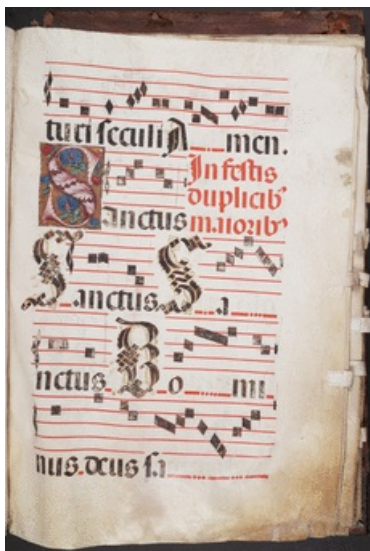 turi seculi Amen.
In festis
duplicib᾽
Sanctus maiorib᾽
Sanctus Sa
nctus Do mi
nus. deus sa